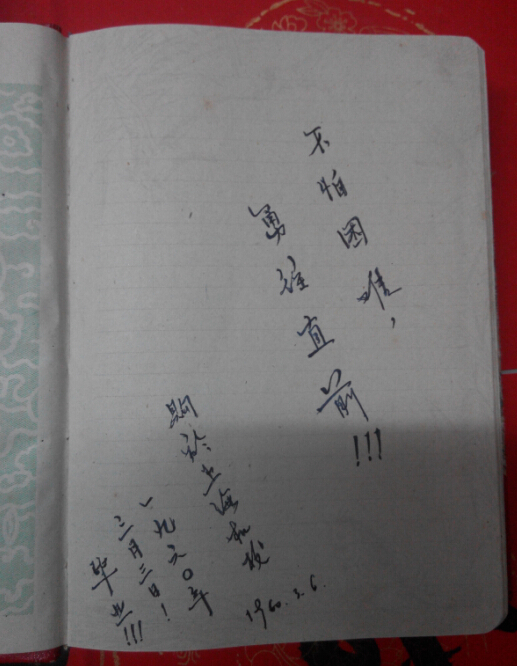 不怕困难,
勇往直前!!!
於上海机校
1960.3.6.
一九六〇年
三月三日!
毕业!!!